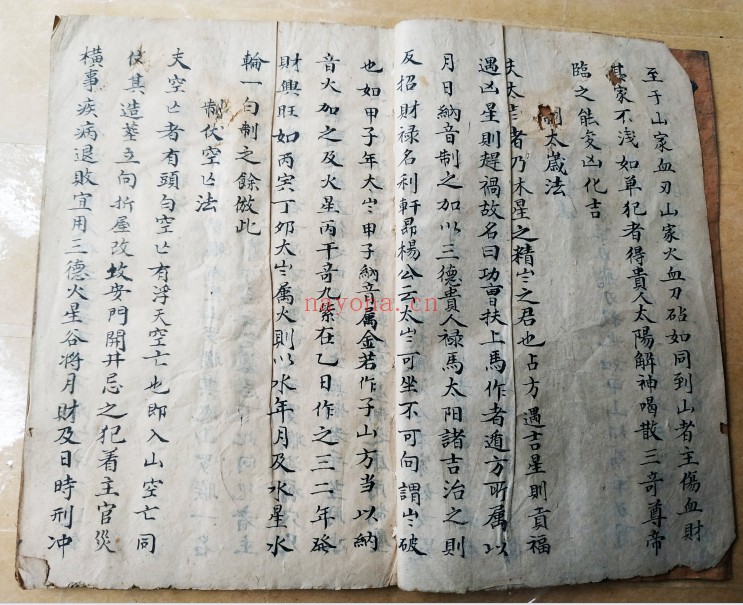 至于山家血刃山家火血刀砧如同到山者主傷血財
其家不浅如單犯者得貴人太陽解神喝散三竒尊帝
臨之能变凶化吉
太歲法
太岁者乃木星之精岁之君也占方遇吉星則貢福
遇凶星則趕禍故名曰功曹扶上馬作者遁方所属以
月日納音制之加以三德貴人禄馬太阳諸吉治之則
反招財禄名利軒昂楊公云太岁可坐不可向謂岁破
也如甲子年大岁甲子納音属金若作子山方当以納
音火加之及火星丙干竒九紫在乙日作之三二年發
財興旺如丙寅丁夘大岁属火則以水年月及水星水
輪一白制之餘倣此
制伏空亾法
夫空亾者有頭勾空亾有浮天空亡也即入山空亡同
其造葬立向折屋改坟安門開井忌之犯着主官災
橫事疾病退敗宜用三德火星谷将月財及日時刑冲
nayona.cn